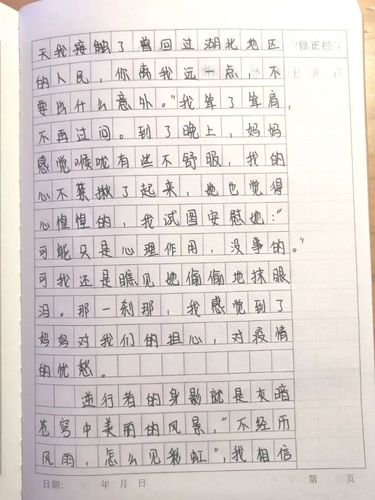 天我接触了曾回过湖北地区
“修正栏”
的人民，你离我远一点，不
要出什么意外。”我耸了耸肩，
不再过问。到了晚上，妈妈
感觉喉咙有些不舒服，我的
心不禁揪了起来，她也觉得
心惶惶的，我试图安慰她：“
可能只是心理作用，没事的。”
可我还是瞧见她偷偷地抹眼
泪。那一刹那，我感觉到了
妈妈对我们的担心，对疫情
的忧愁。
逆行者的身影就是灰暗
苍穹中美丽的风景，“不经历
风雨，怎么见彩虹”，我相信
日期： 年 月 日 第 页